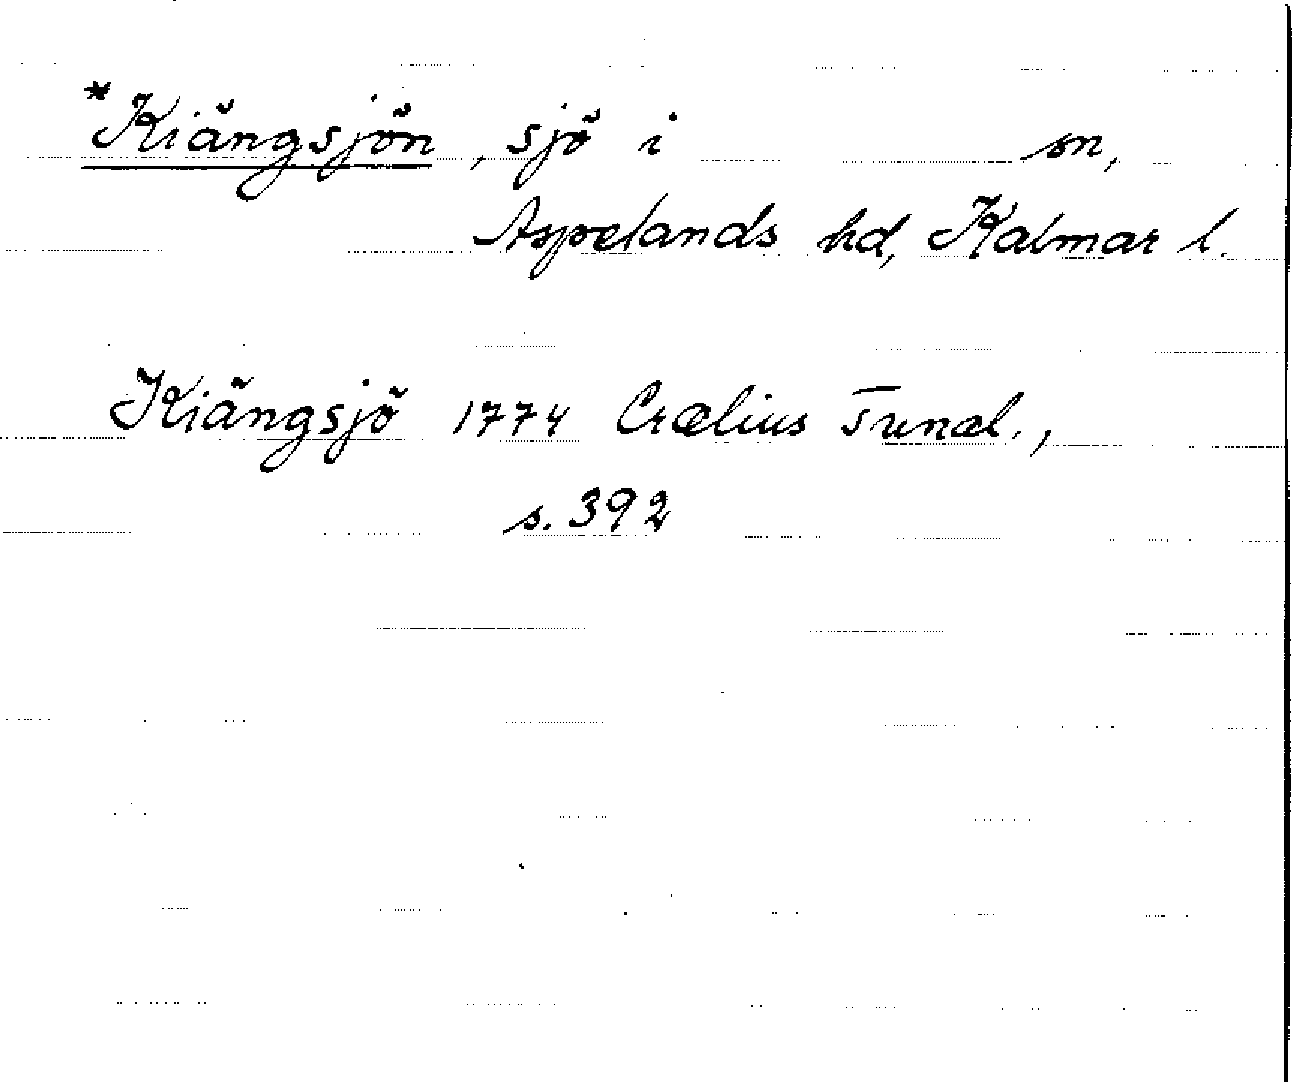 *Kiängsjön, sjö i sn,
Aspelands hd, Kalmar l.
Kiängsjö 1774 Crælius Tunæl.,
s. 392